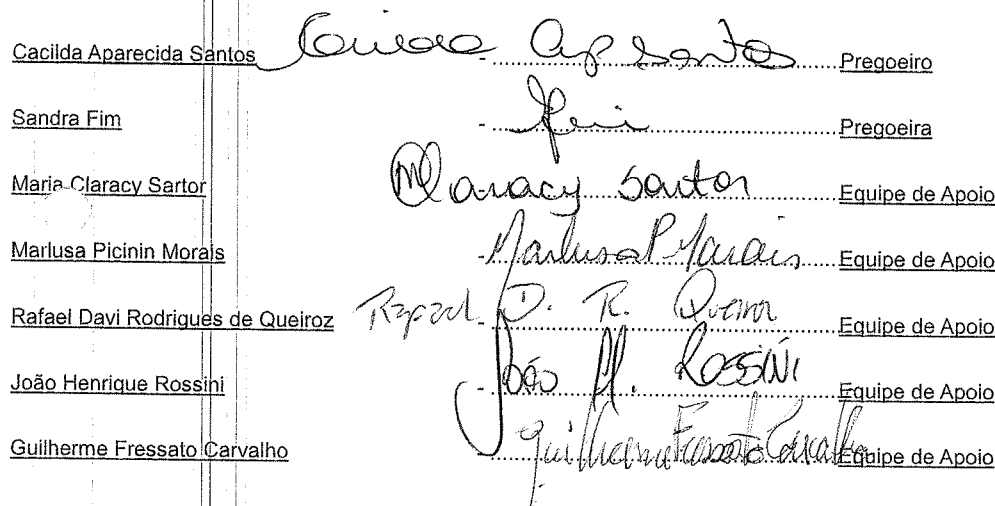 Cacilda Aparecida Santos Cacilda Ap Santos - Pregoeiro
Sandra Fim - Fim Pregoeira
Maria Claracy Sartor MClaracy Sartor Equipe de Apoio
Marlusa Picinin Morais - Marlusa P Morais Equipe de Apoio
Rafael Davi Rodrigues de Queiroz Rafael D. R. Queiroz - Equipe de Apoio
João Henrique Rossini - João H. Rossini Equipe de Apoio
Guilherme Fressato Carvalho - Guilherme Fressato Carvalho Equipe de Apoio